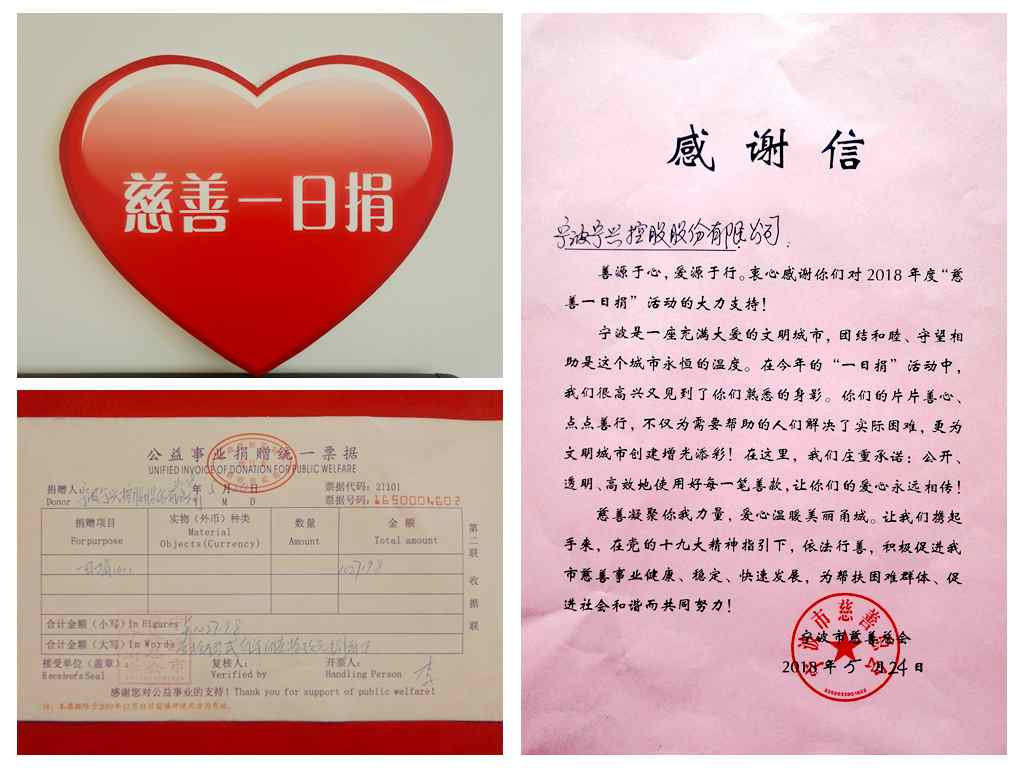 慈善一日捐
公益事业捐赠统一票据
UNIFIED INVOICE OF DONATION FOR PUBLIC WELFARE
捐赠人
Donor
年 5 月 日
Y M D
票据代码：27101
票据号码：1650004602
捐赠项目
For purpose
实物（外币）种类
Material
Objects(Currency)
数量
Amount
金 额
Total amount
第二联 收据联
一日捐
合计金额（小写）In Figures
合计金额（大写）In Words
接受单位（盖章）：
Receiver's Seal
复核人：
Verified by
开票人：
Handling Person
感谢您对公益事业的支持！Thank you for support of public welfare!
感 谢 信
宁波宁兴控股股份有限公司：
善源于心，爱源于行。衷心感谢你们对 2018 年度“慈
善一日捐”活动的大力支持！
宁波是一座充满大爱的文明城市，团结和睦、守望相
助是这个城市永恒的温度。在今年的“一日捐”活动中，
我们很高兴又见到了你们熟悉的身影。你们的片片善心、
点点善行，不仅为需要帮助的人们解决了实际困难，更为
文明城市创建增光添彩！在这里，我们庄重承诺：公开、
透明、高效地使用好每一笔善款，让你们的爱心永远相传！
慈善凝聚你我力量，爱心温暖美丽甬城。让我们携起
手来，在党的十九大精神指引下，依法行善，积极促进我
市慈善事业健康、稳定、快速发展，为帮扶困难群体、促
进社会和谐而共同努力！
宁波市慈善总会
2018 年 5 月 24 日